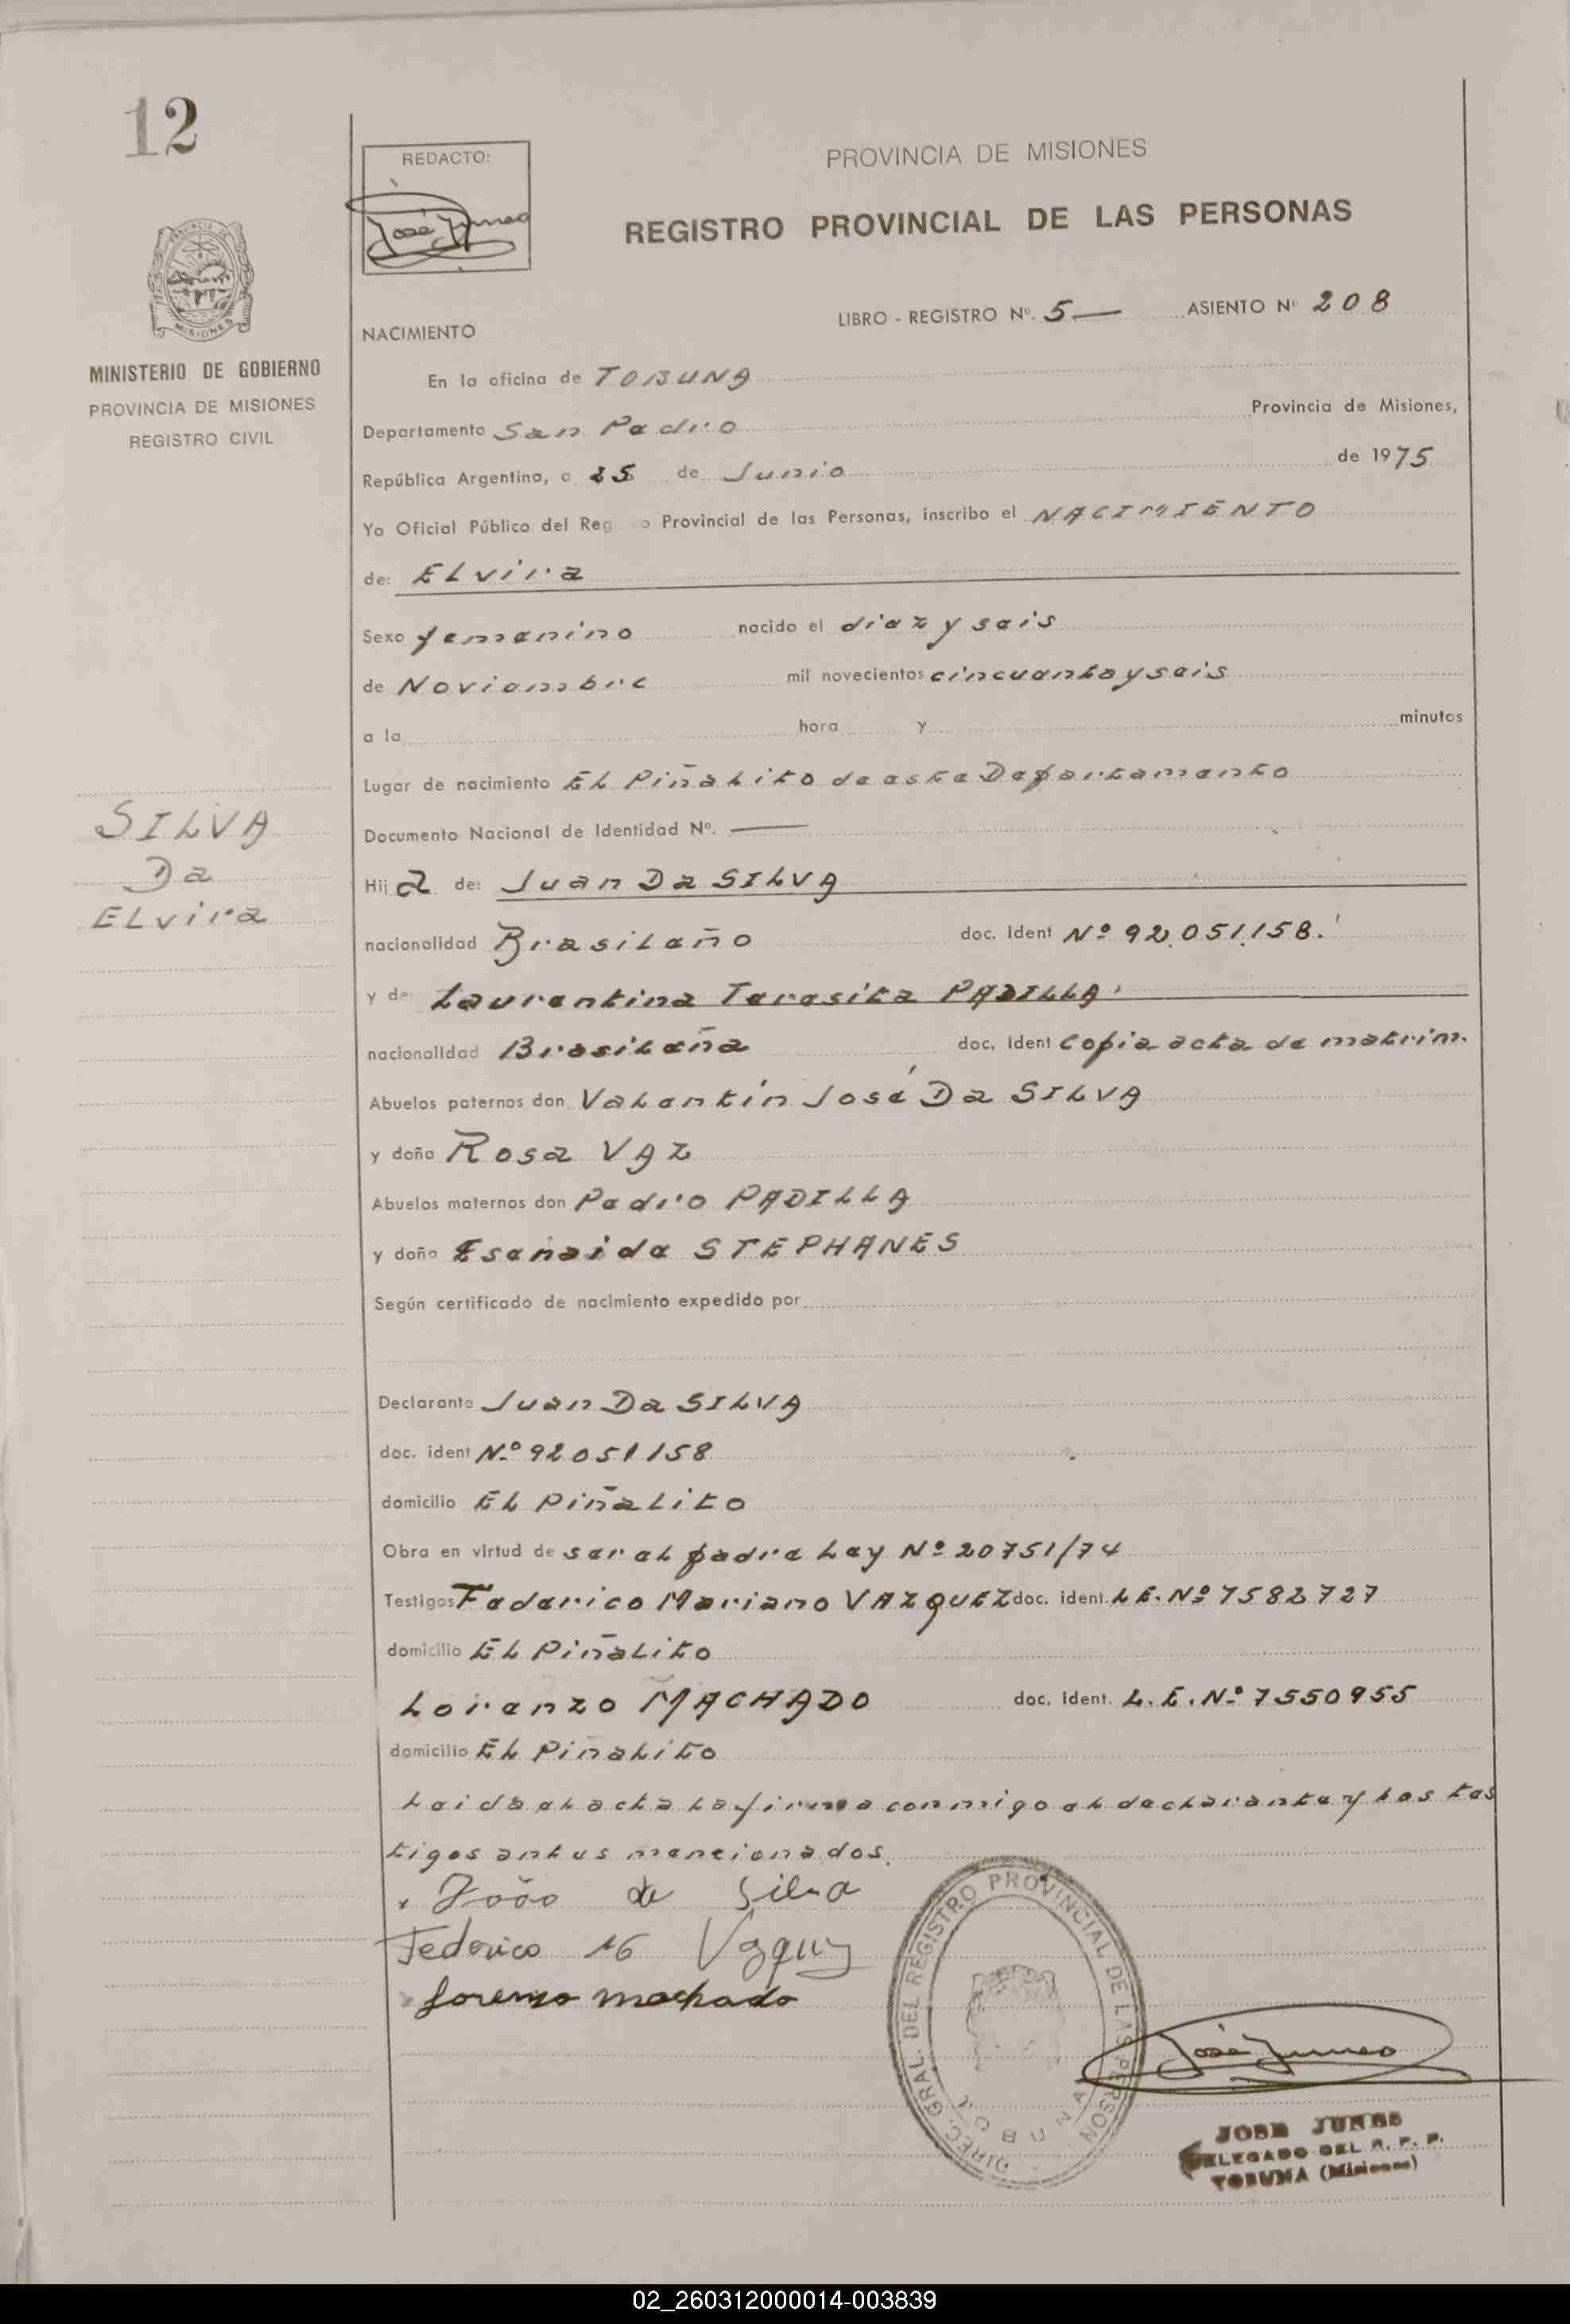 12
REDACTO:
PROVINCIA DE MISIONES
REGISTRO PROVINCIAL DE LAS PERSONAS
MISIONES
MINISTERIO DE GOBIERNO
PROVINCIA DE MISIONES
REGISTRO CIVIL
LIBRO - REGISTRO Nº. 5 — ASIENTO Nº 208
NACIMIENTO
En la oficina de TOBUNA
Departamento San Pedro Provincia de Misiones,
República Argentina, a 25 de Junio de 1975
Yo Oficial Público del Reg o Provincial de las Personas, inscribo el NACIMIENTO
de: ELvira
Sexo femenino nacido el diez y seis
de Noviembre mil novecientos cincuenta y seis
a la hora y minutos
Lugar de nacimiento EL Piñalito de este Departamento
Documento Nacional de Identidad Nº. —
SILVA
Da
ELvira
Hij a de: Juan Da SILVA
nacionalidad Brasileño doc. Ident Nº 92.051.158.
y de Laurentina Teresita PADILLA
nacionalidad Brasileña doc. Ident Copia acta de matrim.
Abuelos paternos don Valentín José Da SILVA
y doña Rosa VAZ
Abuelos maternos don Pedro PADILLA
y doña Esenaida STEPHANES
Según certificado de nacimiento expedido por
Declarante Juan Da SILVA
doc. ident Nº 92051158
domicilio EL PiñaLito
Obra en virtud de ser el padre Ley Nº 20751/74
Testigos Federico Mariano VAZQUEZ doc. ident. L.E. Nº 7582727
domicilio EL PiñaLito
Lorenzo MACHADO doc. ident. L.E. Nº 7550955
domicilio EL Piñalito
Leida el acta la firma conmigo el declarante y los tes
tigos antes mencionados.
João da Silva
Federico M Vazquez
Lorenzo machado
DIREC. GRAL. DEL REGISTRO PROVINCIAL DE LAS PERSON
TOBUNA
DELEGADO DEL R. P. P.
TOBUNA (Misiones)
02_260312000014-003839